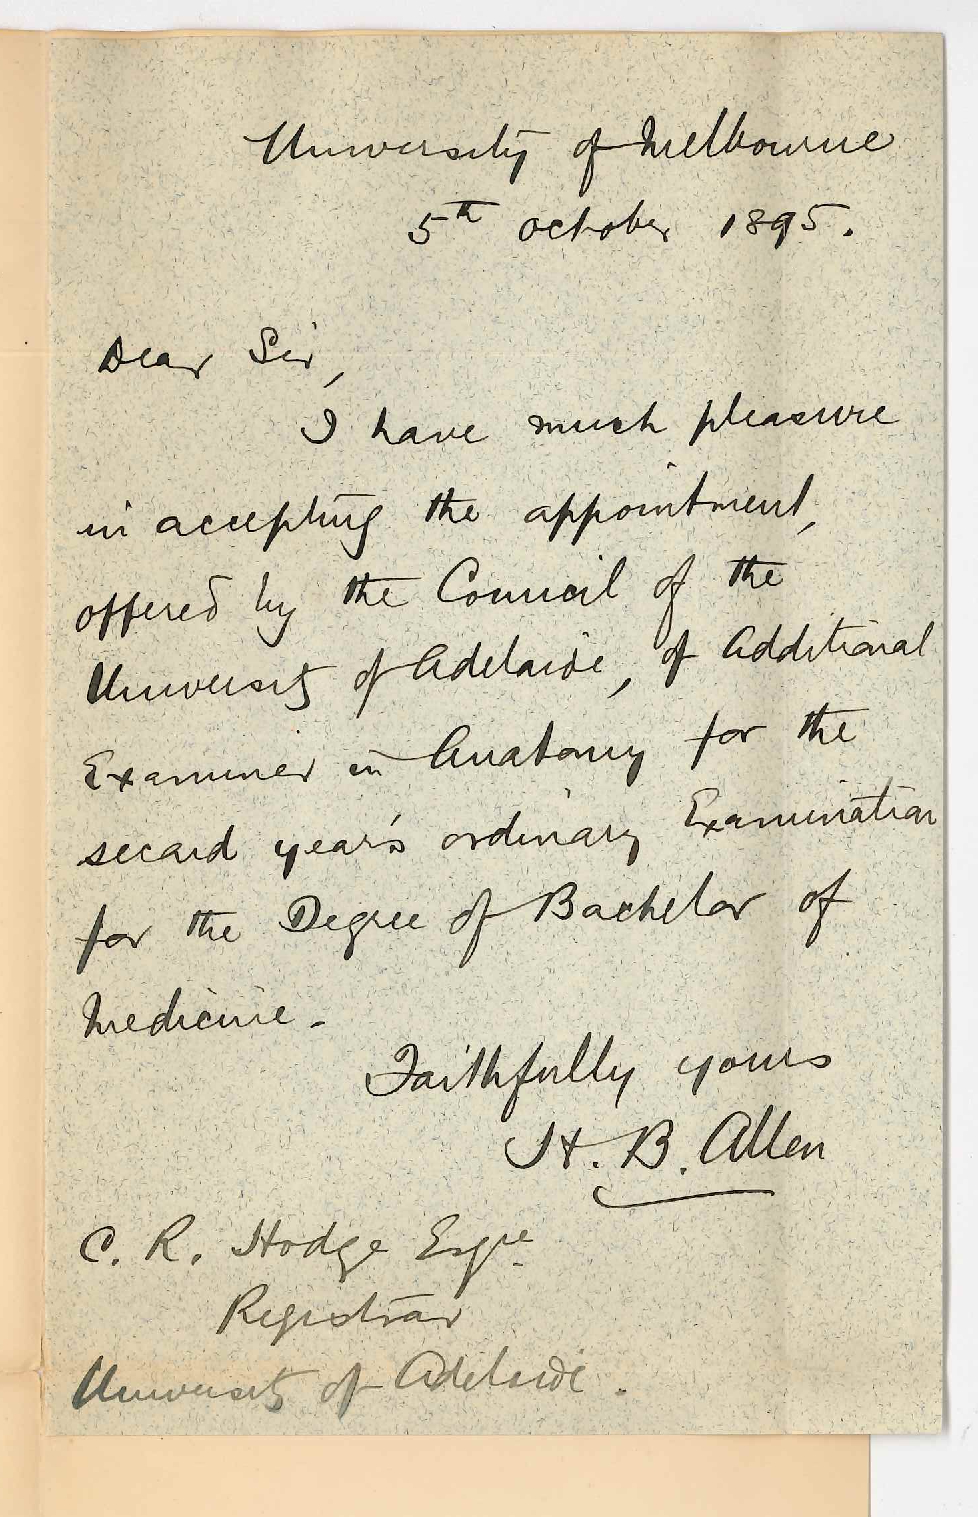 University of Melbourne
5th October 1895.
Dear Sir,
I have much pleasure
in accepting the appointment,
offered by the Council of the
University of Adelaide, of Additional
Examiner in Anatomy for the
second year's ordinary Examination
for the Degree of Bachelor of
Medicine.
Faithfully yours
H. B. Allen
C. R. Hodge Esqre.
Registrar
University of Adelaide.